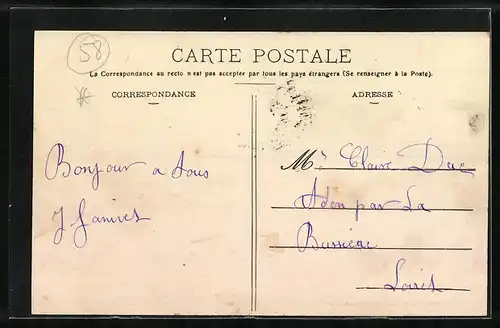 58
CARTE POSTALE
La Correspondance au recto n'est pas acceptée par tous les pays étrangers (Se renseigner à la Poste).
CORRESPONDANCE
ADRESSE
Bonjour a tous
M. Claire Duc
Adon par La
Bussière
Loiret